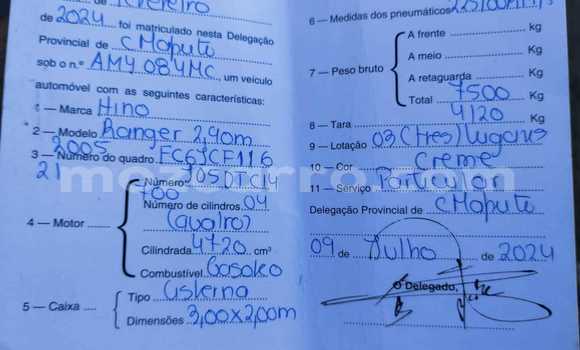 de 2024 foi matriculado nesta Delegação
Provincial de CMaputo
sob o n.º AMY 084MC, um veículo
automóvel com as seguintes características:
1 — Marca Hino
2 — Modelo Ranger 2,40m
2005
3 — Número do quadro FC6JCF116
21
Número J05DTC14
700
Número de cilindros 04
4 — Motor
(quatro)
Cilindrada 4720 cm³
Combustível Gasoleo
5 — Caixa
Tipo Cisterna
Dimensões 3,00x2,00m
6 — Medidas dos pneumáticos
7 — Peso bruto
A frente Kg
A meio Kg
A retaguarda Kg
Total 7500 Kg
8 — Tara 4120 Kg
9 — Lotação 03 (três) lugares
10 — Cor Creme
11 — Serviço Particular
Delegação Provincial de CMaputo
09 de Julho de 2024
O Delegado,